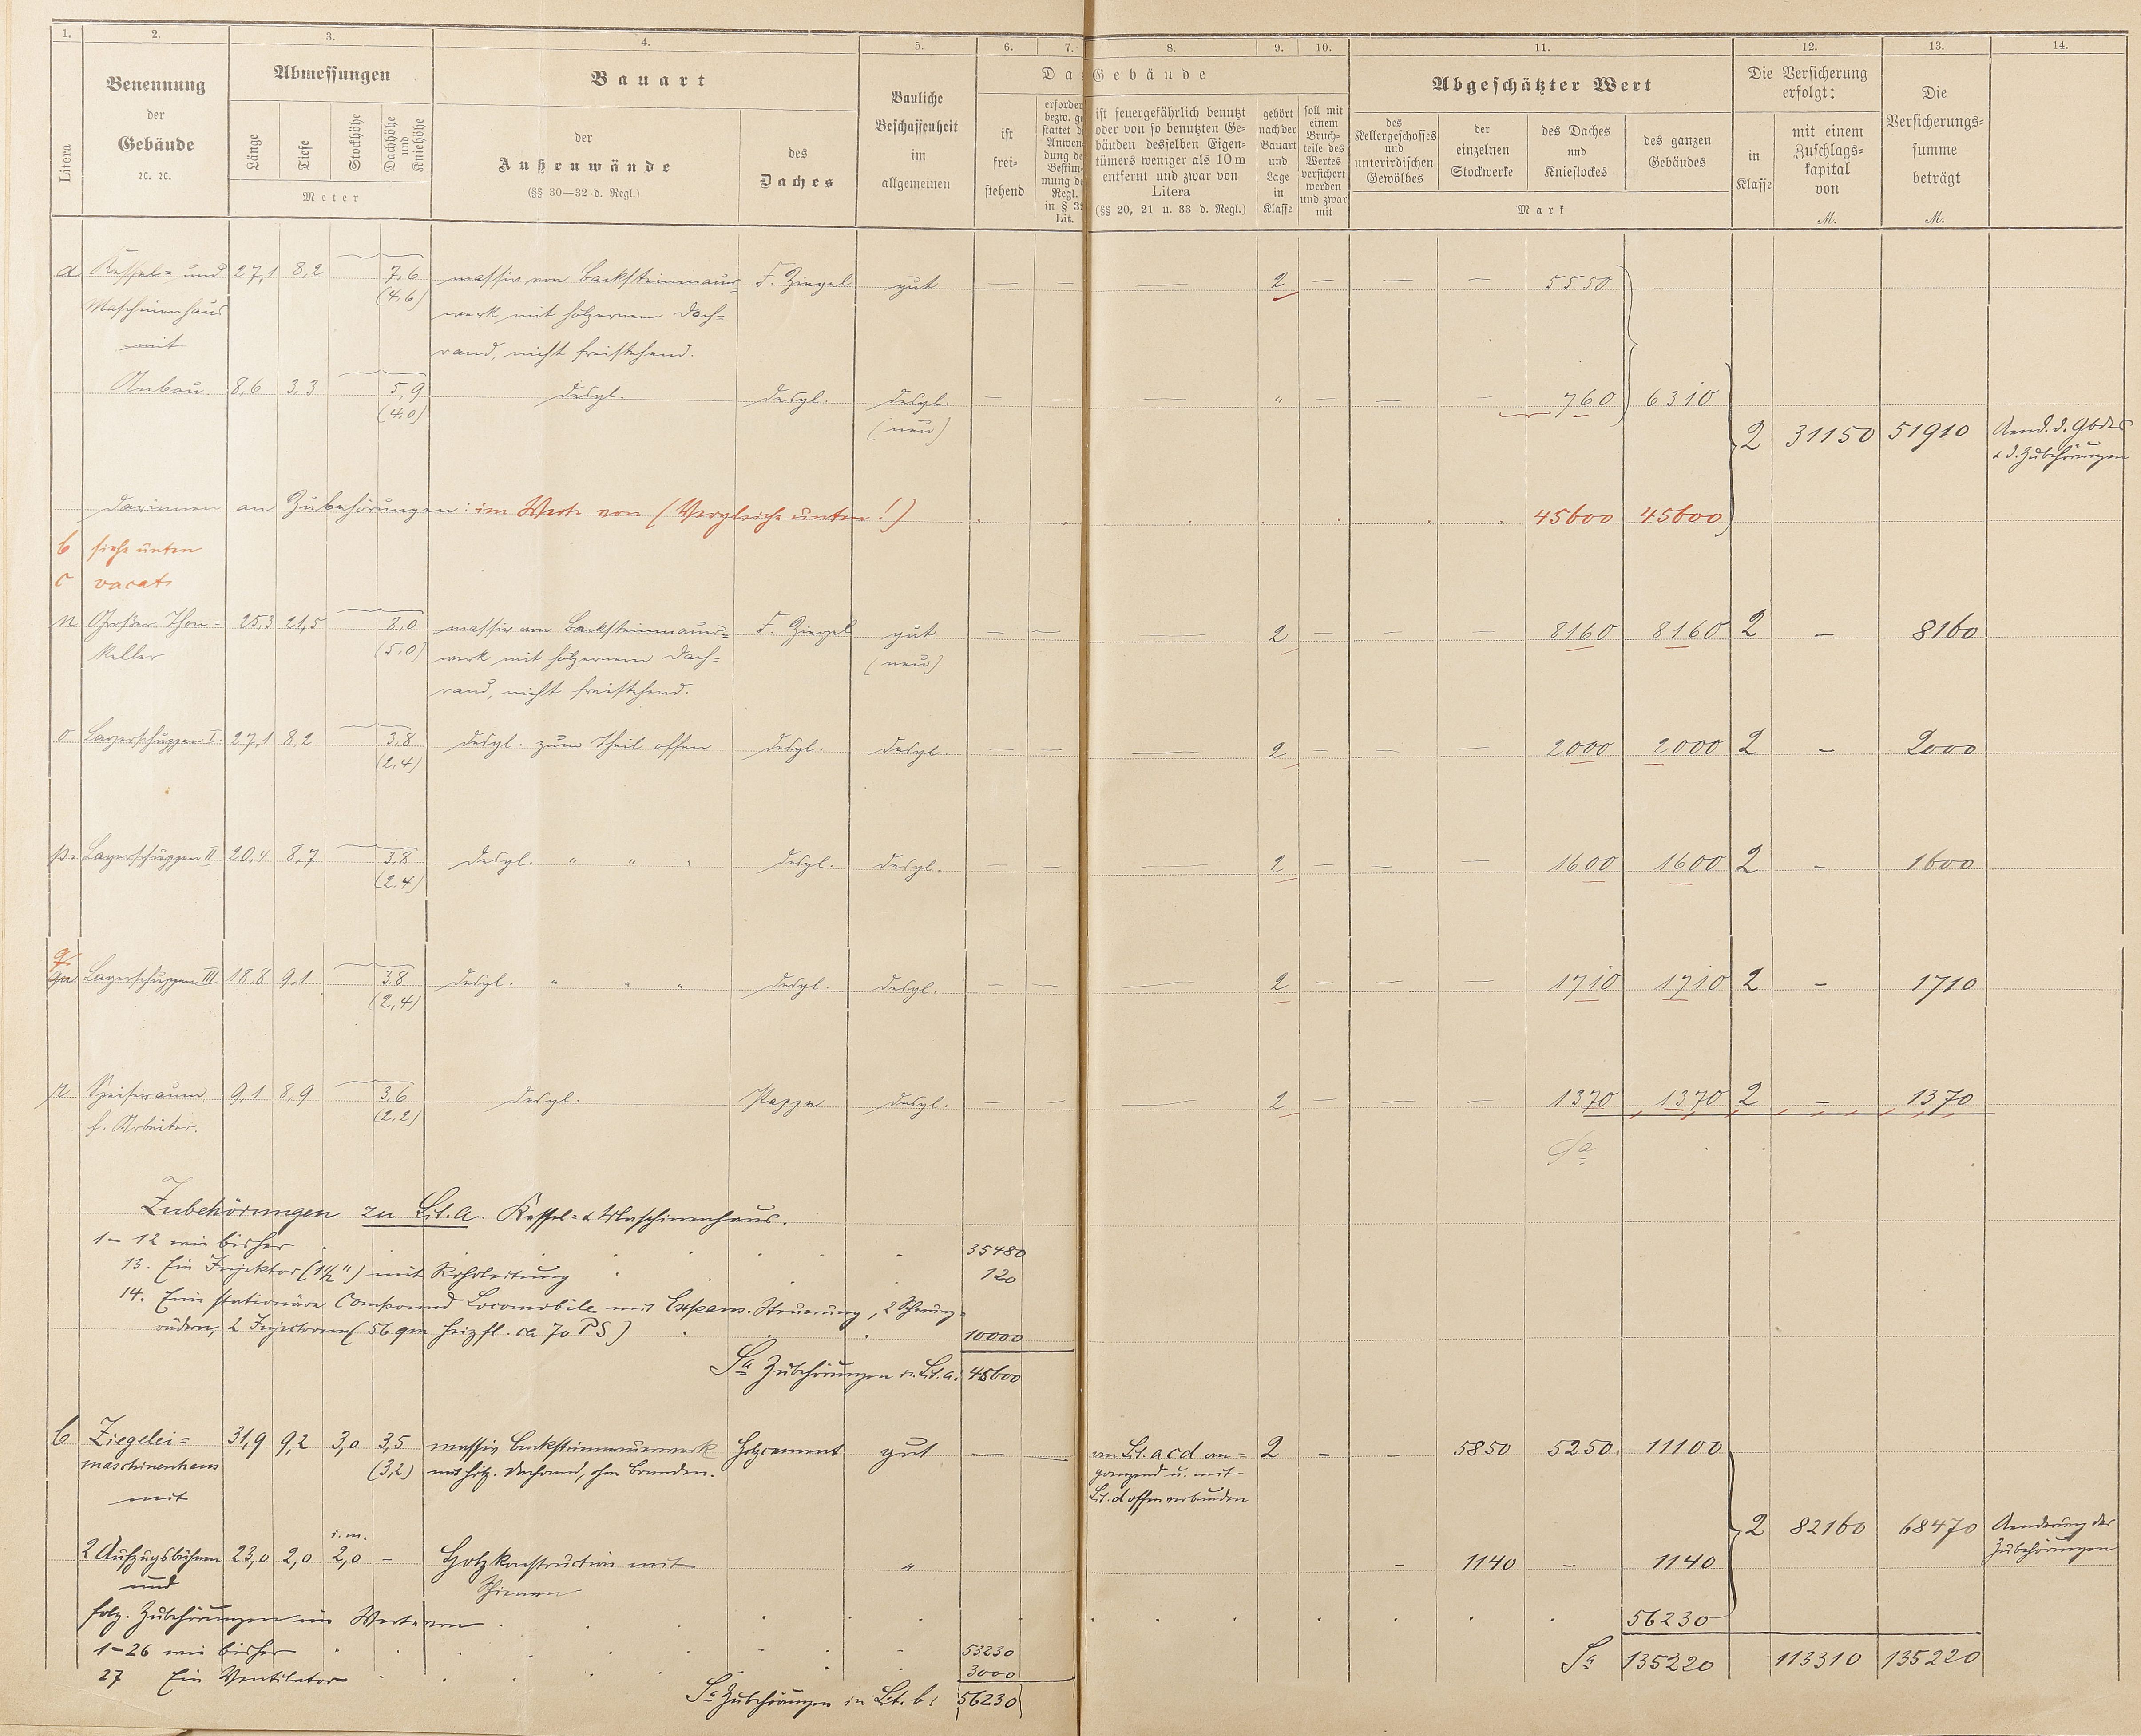 1. 2. 3. 4. 5. 6. 7. 8. 9. 10. 11. 12. 13. 14.
Litera
Benennung
der
Gebäude
ꝛc. ꝛc.
Abmessungen
Länge
Tiefe
Stockhöhe
Dachhöhe
und
Kniehöhe
Meter
Bauart
der
Außenwände
(§§ 30—32 d. Regl.)
des
Daches
Bauliche
Beschaffenheit
im
allgemeinen
Das Gebäude
ist
frei-
stehend
erforder
bezw. ge
stattet d
Anwen
dung de
Bestim-
mung de
Regl.
in § 32
Lit.
ist feuergefährlich benutzt
oder von so benutzten Ge-
bäuden desselben Eigen-
tümers weniger als 10 m
entfernt und zwar von
Litera
(§§ 20, 21 u. 33 d. Regl.)
gehört
nach der
Bauart
und
Lage
in
Klasse
soll mit
einem
Bruch-
teile des
Wertes
versichert
werden
und zwar
mit
Abgeschätzter Wert
des
Kellergeschosses
und
unterirdischen
Gewölbes
der
einzelnen
Stockwerke
des Daches
und
Kniestockes
des ganzen
Gebäudes
Mark
Die Versicherung
erfolgt:
in
Klasse
mit einem
Zuschlags-
kapital
von
M.
Die
Versicherungs-
summe
beträgt
M.
a Kessel= und 27,1 8,2 7,6 massiv von Backsteinmauer= F. Ziegel gut — — — 2 — — — 5550
Maschinenhaus (4,6) werk mit hölzernem Dach=
mit rand, nicht freistehend.
Anbau. 8,6 3,3 5,9 desgl. desgl. desgl. — — — " — — — 760 6310
(4,0) (neu)
2 31150 51910 Aend. d. Gbdes
& d. Zubehörungen
darinnen an Zubehörungen: im Werte von (Vergleiche unten!) 45600 45600
b siehe unten
c vacat
n Großer Thon= 25,3 21,5 8,0 massiv von Backsteinmauer= F. Ziegel gut — — — 2 — — — 8160 8160 2 — 8160
keller (5,0) werk mit hölzernem Dach= (neu)
rand, nicht freistehend.
o Lagerschuppen I. 27,1 8,2 3,8 desgl. zum Theil offen desgl. desgl — — — 2 — — — 2000 2000 2 — 2000
(2,4)
p. Lagerschuppen II 20,4 8,7 3,8 desgl. " " " desgl. desgl. — — — 2 — — — 1600 1600 2 — 1600
(2,4)
q.
qu Lagerschuppen III 18,8 9,1 3,8 desgl. " " " desgl. desgl. — — — 2 — — — 1710 1710 2 — 1710
(2,4)
r Speiseraum 9,1 8,9 3,6 desgl. Pappe desgl. — — — 2 — — — 1370 1370 2 — 1370
f. Arbeiter. (2,2)
Sa
Zubehörungen zu Lit. a. Kessel= & Maschinenhaus.
1–12 wie bisher 35480
13. Ein Injektor (1½") mit Rohrleitung 120
14. Eine stationäre Compound Locomobile mit Expans. Steuerung, 2 Schwung=
rädern, 2 Injectoren (56 qm Heizfl. ca 70 PS) 10000
Sa Zubehörungen in Lit. a: 45600
b Ziegelei= 31,9 9,2 3,0 3,5 massiv Backsteinmauerwerk Holzcement gut — — an Lit. a c d an= 2 — — 5850 5250. 11100
maschinenhaus (3,2) mit hölz. Dachrand, ohne Brandm. grenzend u. mit
mit Lit. d offen verbunden
i. m.
2 82160 68470 Aenderung der
Zubehörungen
2 Aufzugsbühnen 23,0 2,0 2,0 — Holzkonstruction mit " — 1140 — 1140
und Schienen
folg. Zubehörungen im Werte von 56230
1–26 wie bisher 53230
Sa 135220 113310 135220
27 Ein Ventilator 3000
Sa Zubehörungen in Lit. b: 56230